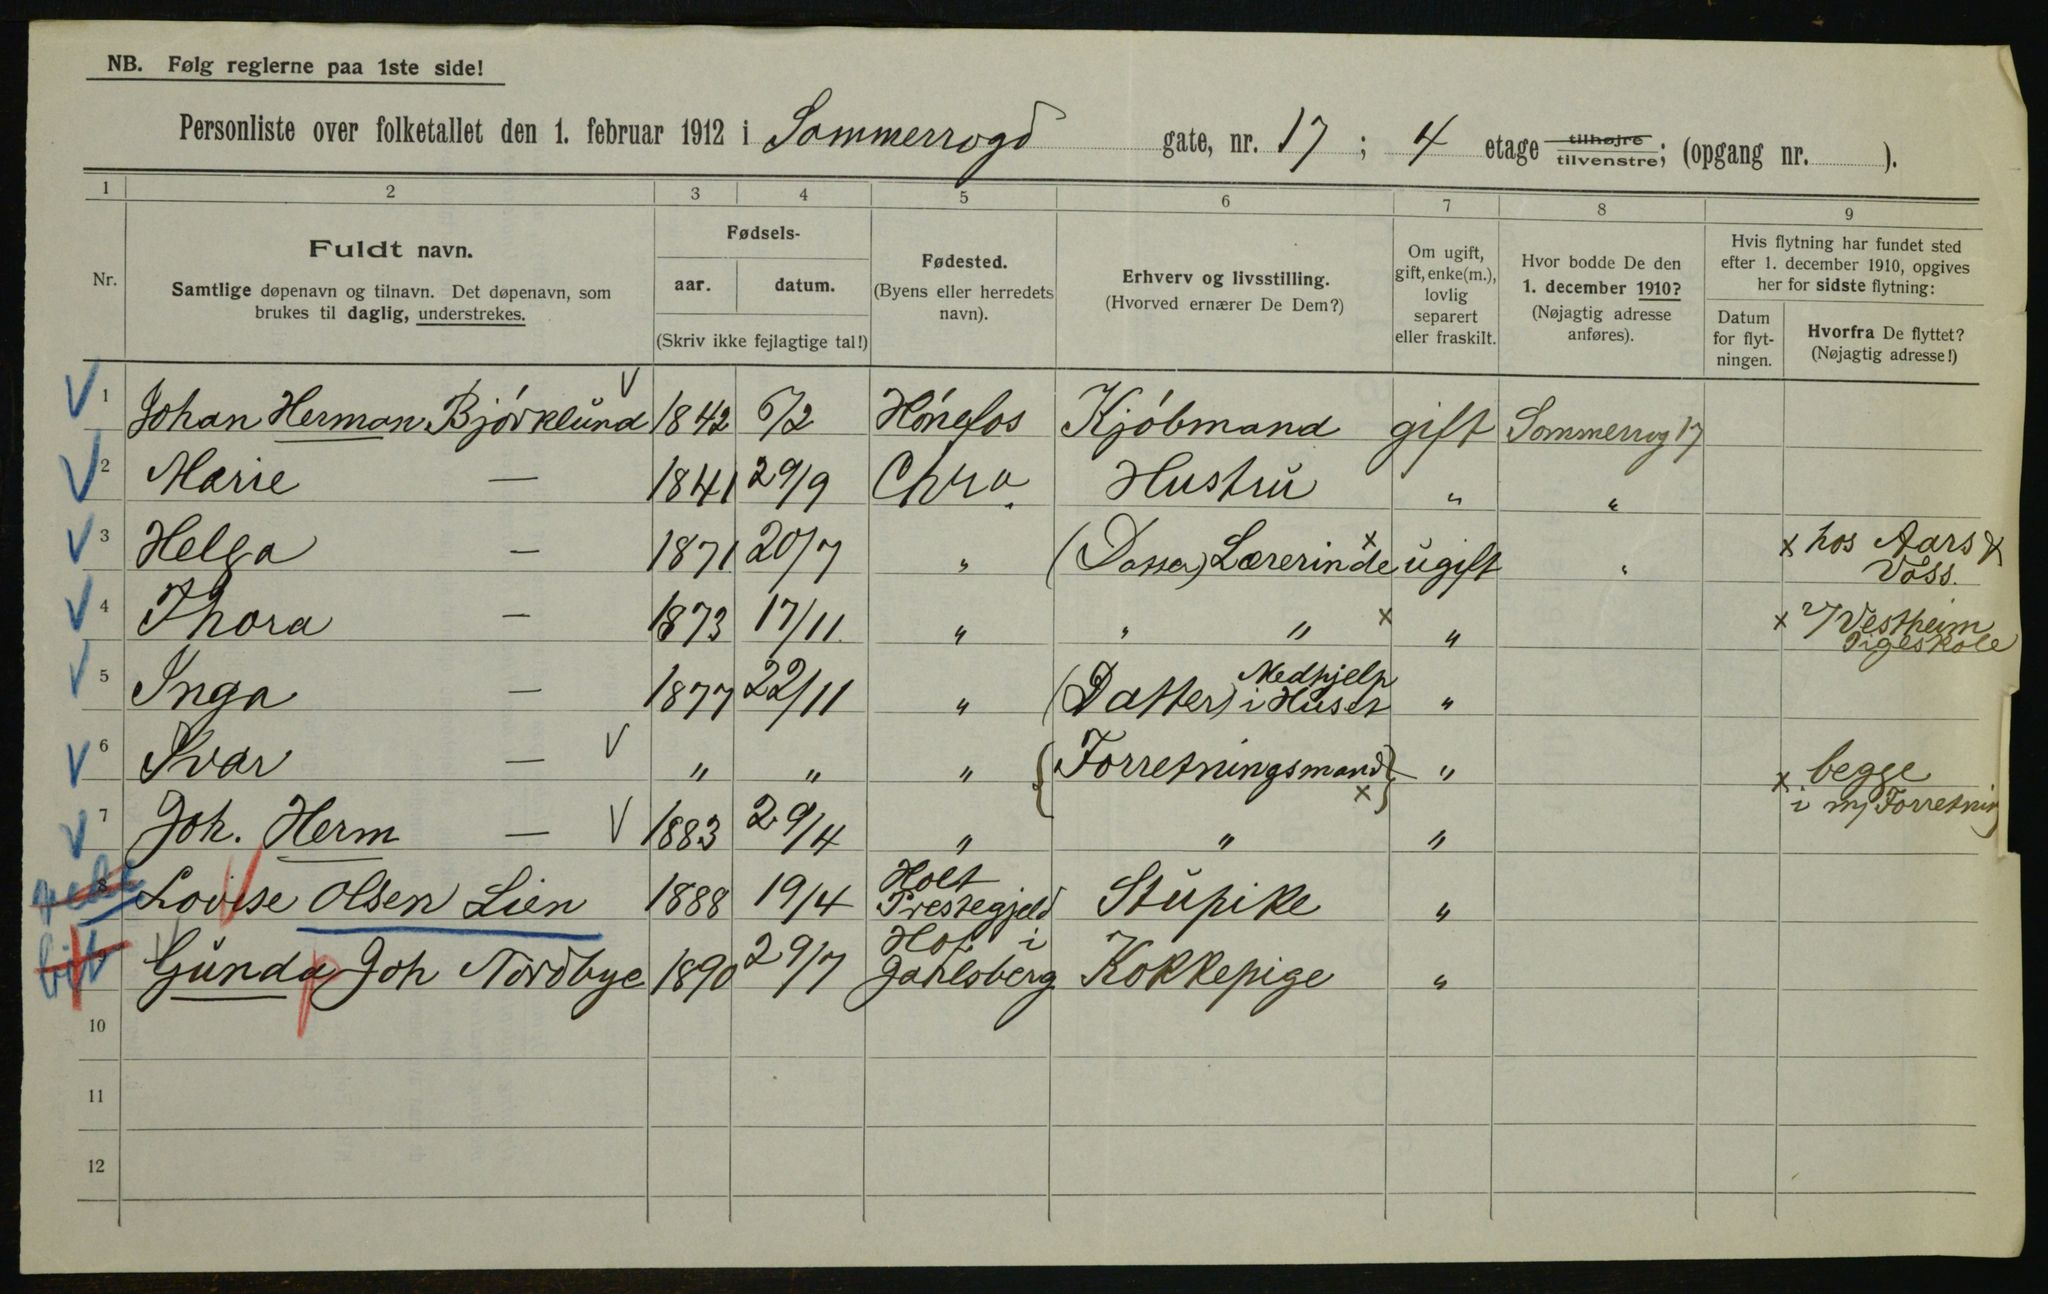 NB. Følg reglerne paa 1ste side!
Personliste over folketallet den 1. februar 1912 i Sommerrogd gate, nr. 17; 4 etage tilhøjre tilvenstre; (opgang nr. ).
1 2 3 4 5 6 7 8 9
Nr. Fuldt navn. Samtlige døpenavn og tilnavn. Det døpenavn, som brukes til daglig, understrekes.
Fødsels- aar. datum. (Skriv ikke fejlagtige tal!)
Fødested. (Byens eller herredets navn).
Erhverv og livsstilling. (Hvorved ernærer De Dem?)
Om ugift, gift, enke(m.), lovlig separert eller fraskilt.
Hvor bodde De den 1. december 1910? (Nøjagtig adresse anføres).
Hvis flytning har fundet sted efter 1. december 1910, opgives her for sidste flytning:
Datum for flytningen. Hvorfra De flyttet? (Nøjagtig adresse!)
1 Johan Herman Bjórklund 1842 6/2 Hónefos Kjóbmand gift Sommerrog 17
2 Marie — 1841 29/9 Chra. Hustru " "
3 Helga — 1871 20/7 " Lærerinde x ugift " x hos Aars & Voss.
4 Thora — 1873 17/11 " " " x " x Vestheim Pigeskole
5 Inga — 1877 22/11 " (Datter) Medhjelp i Huset "
6 Ivar — " " " {Forretningsmand} x " x begge i m/ Forretnin
7 Joh. Herm — 1883 29/4 " " "
8 Lovise Olsen Lien 1888 19/4 Holt Prestegjeld Stupike "
Gunda Joh Nordbye 1890 29/7 Hof i Jarlsberg Kokkepige "
10
11
12